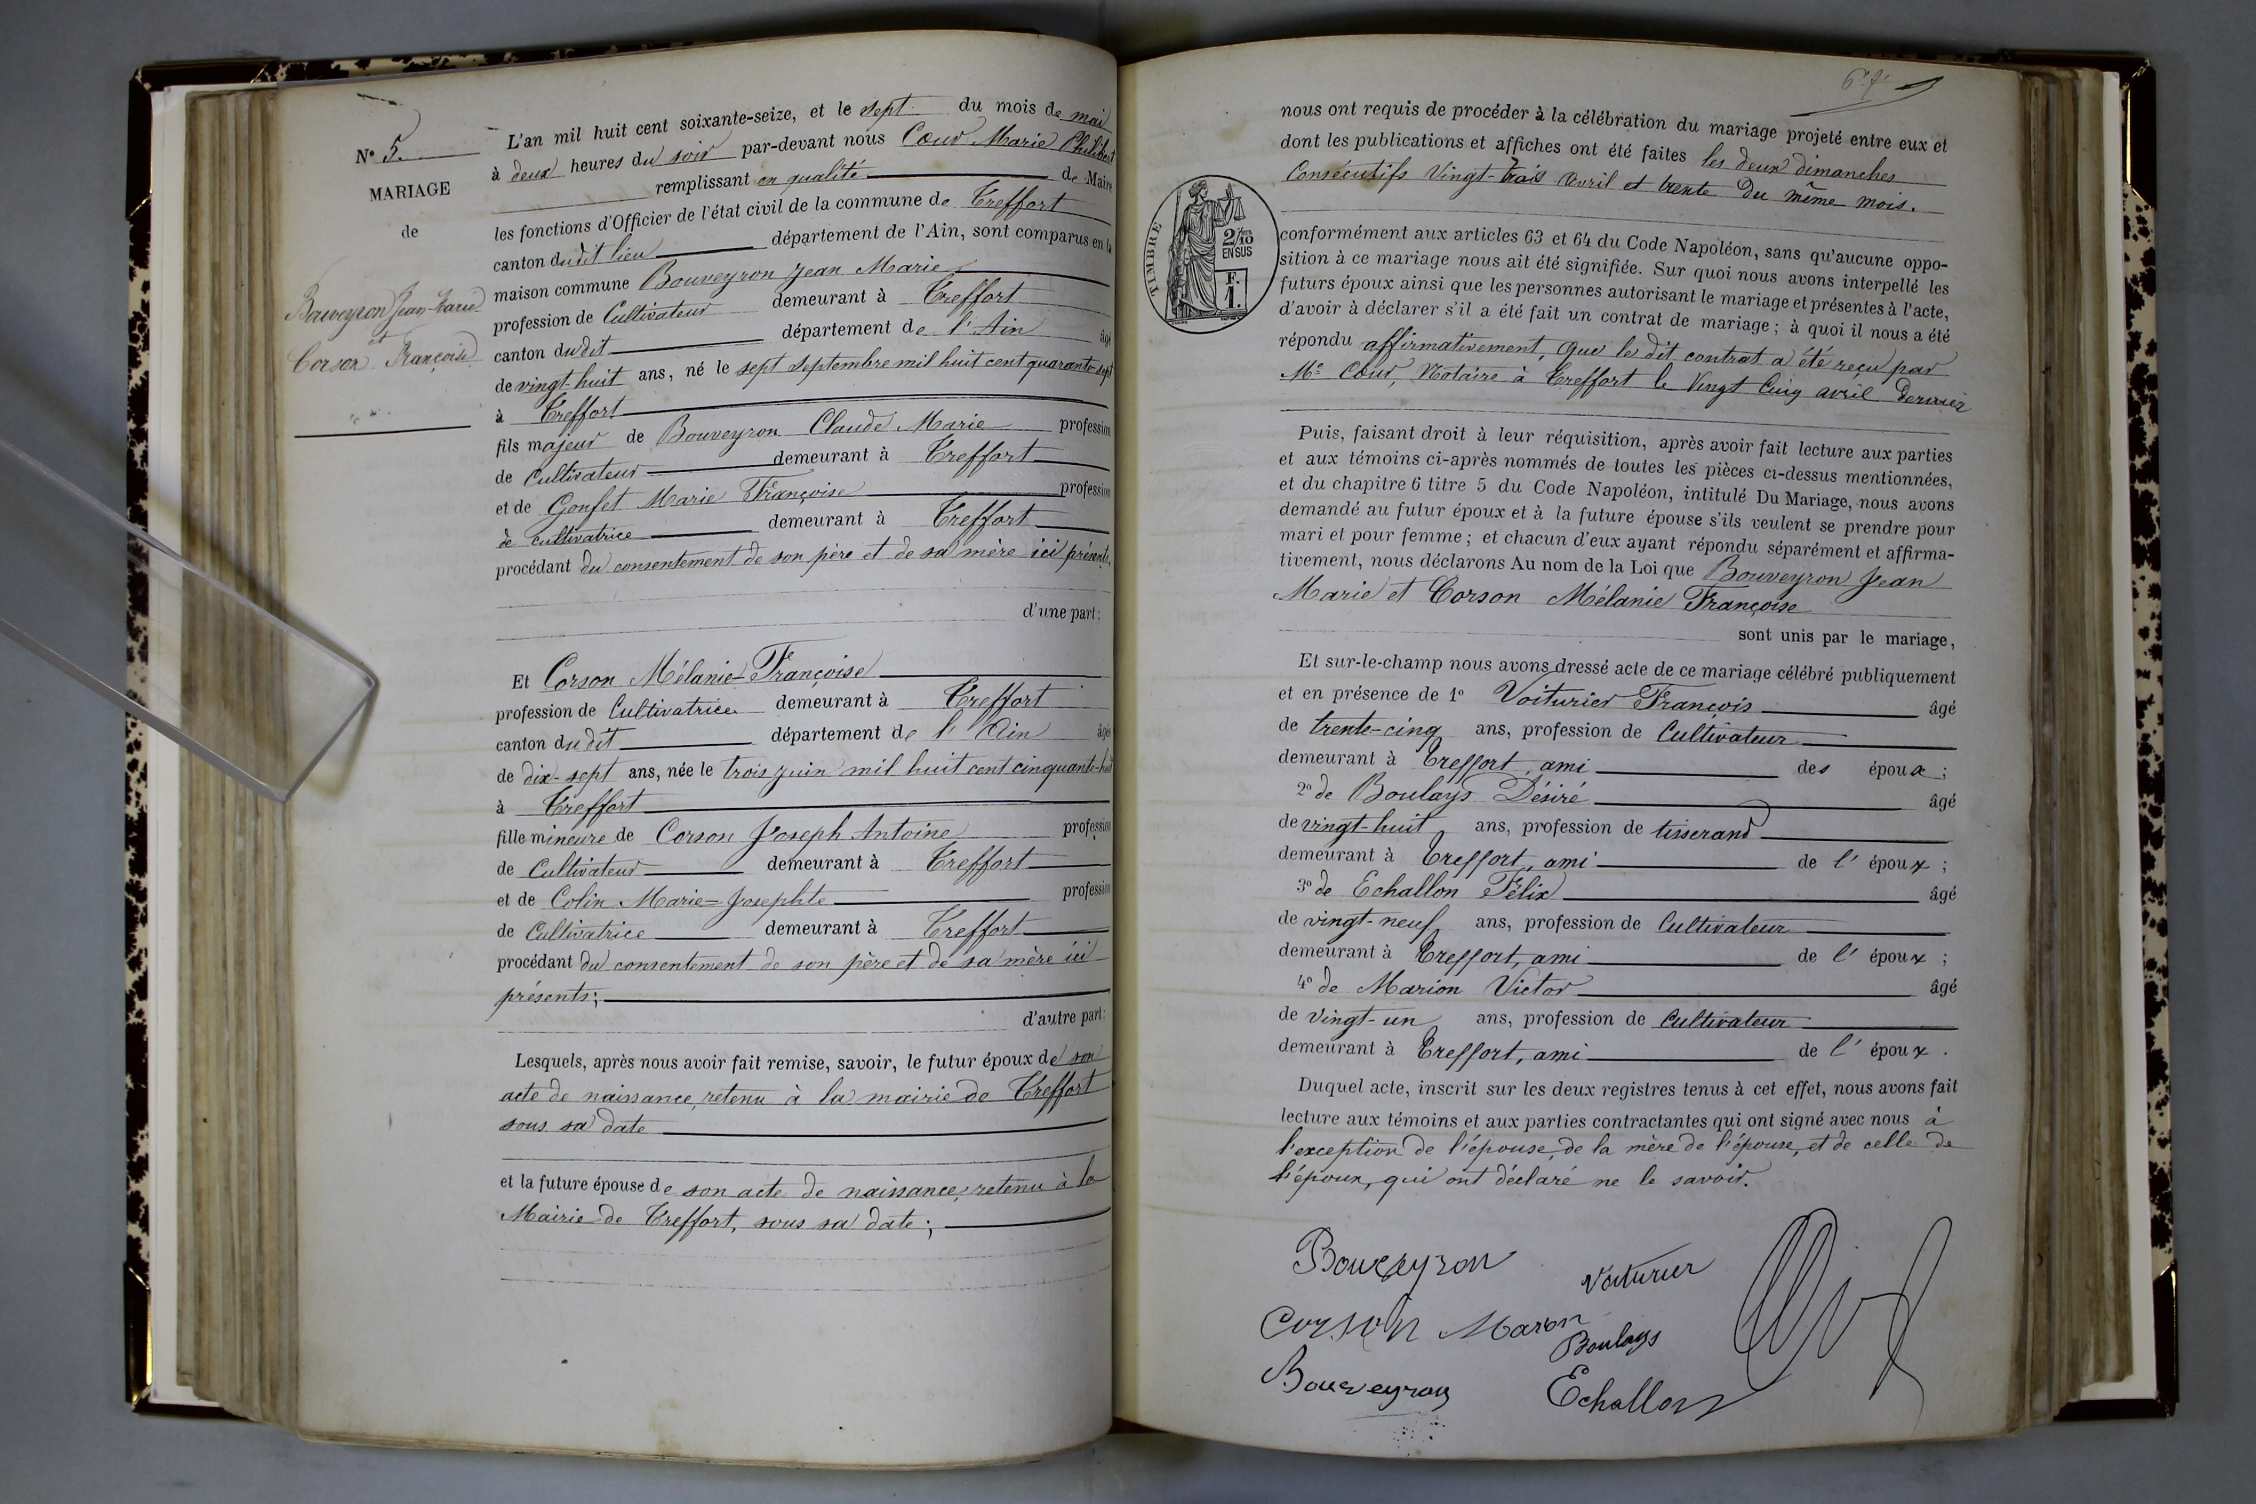 N° 5.
MARIAGE
de
Bouveyron Jean-Marie
et
Corson Françoise
L'an mil huit cent soixante-seize, et le sept du mois de mai
à deux heures du soir par-devant nous Cœur Marie Philibert
remplissant en qualité de Maire
les fonctions d'Officier de l'état civil de la commune de Treffort
canton dudit lieu département de l'Ain, sont comparus en la
maison commune Bouveyron Jean Marie
profession de Cultivateur demeurant à Treffort
canton dudit département de l'Ain âgé
de vingt-huit ans, né le sept septembre mil huit cent quarante-sept
à Treffort
fils majeur de Bouveyron Claude Marie profession
de Cultivateur demeurant à Treffort
et de Gonfet Marie Françoise profession
de cultivatrice demeurant à Treffort
procédant du consentement de son père et de sa mère ici présents,
d'une part:
Et Corson Mélanie-Françoise
profession de Cultivatrice demeurant à Treffort
canton dudit département de l'Ain âgée
de dix-sept ans, née le trois juin mil huit cent cinquante-huit
à Treffort
fille mineure de Corson Joseph Antoine profession
de Cultivateur demeurant à Treffort
et de Colin Marie=Josephte profession
de Cultivatrice demeurant à Treffort
procédant du consentement de son père et de sa mère ici
présents;
d'autre part:
Lesquels, après nous avoir fait remise, savoir, le futur époux de son
acte de naissance, retenu à la mairie de Treffort
sous sa date
et la future épouse de son acte de naissance, retenu à la
Mairie de Treffort, sous sa date;
nous ont requis de procéder à la célébration du mariage projeté entre eux et
dont les publications et affiches ont été faites les deux dimanches
Consécutifs Vingt-trois avril et trente du même mois.
TIMBRE
2/10
EN SUS
F.
1.
conformément aux articles 63 et 64 du Code Napoléon, sans qu'aucune oppo-
sition à ce mariage nous ait été signifiée. Sur quoi nous avons interpellé les
futurs époux ainsi que les personnes autorisant le mariage et présentes à l'acte,
d'avoir à déclarer s'il a été fait un contrat de mariage; à quoi il nous a été
répondu affirmativement, que le dit contrat a été reçu par
Me Cœur, Notaire à Treffort le Vingt Cinq avril dernier
Puis, faisant droit à leur réquisition, après avoir fait lecture aux parties
et aux témoins ci-après nommés de toutes les pièces ci-dessus mentionnées,
et du chapitre 6 titre 5 du Code Napoléon, intitulé Du Mariage, nous avons
demandé au futur époux et à la future épouse s'ils veulent se prendre pour
mari et pour femme; et chacun d'eux ayant répondu séparément et affirma-
tivement, nous déclarons Au nom de la Loi que Bouveyron Jean
Marie et Corson Mélanie Françoise
sont unis par le mariage,
Et sur-le-champ nous avons dressé acte de ce mariage célébré publiquement
et en présence de 1° Voiturier François âgé
de trente-cinq ans, profession de Cultivateur
demeurant à Treffort, ami des époux;
2° de Boulays Désiré âgé
de vingt-huit ans, profession de tisserand
demeurant à Treffort, ami de l'époux;
3° de Echallon Félix âgé
de vingt-neuf ans, profession de Cultivateur
demeurant à Treffort, ami de l'époux;
4° de Marion Victor âgé
de vingt-un ans, profession de Cultivateur
demeurant à Treffort, ami de l'époux.
Duquel acte, inscrit sur les deux registres tenus à cet effet, nous avons fait
lecture aux témoins et aux parties contractantes qui ont signé avec nous à
l'exception de l'épouse, de la mère de l'épouse, et de celle de
l'époux, qui ont déclaré ne le savoir.
Bouveyron Voiturier
Corson Marion
Boulays
Bouveyron Echallon